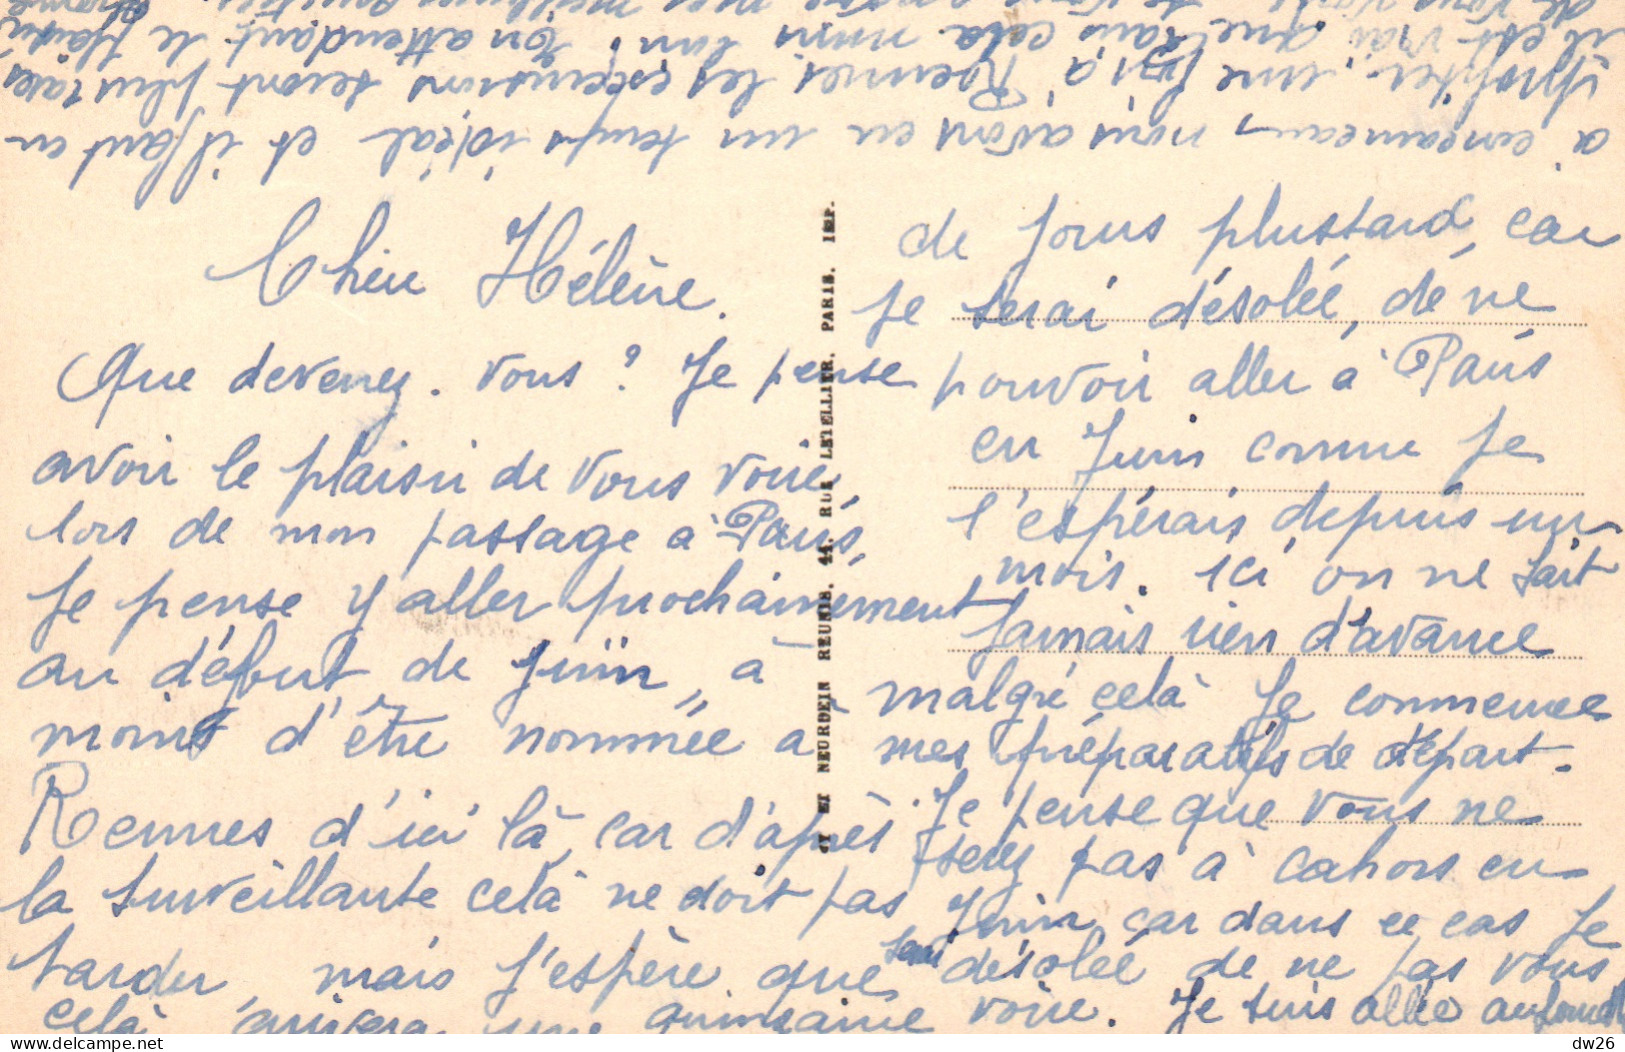 Chère Hélène.
Que devenez-vous ? Je pense
avoir le plaisir de vous voire,
lors de mon passage à Paris,
Je pense y aller prochainement
au début de Juin, à
moins d'être nommée à
Rennes d'ici là, car d'après
la surveillante celà ne doit pas
tarder, mais j'espère que
celà arrivera une quinzaine
de jours plustard, car
je serai désolée, de ne
pouvoir aller à Paris
en Juin comme je
l'espérais depuis un
mois. Ici on ne sait
Jamais rien d'avance
malgré celà je commence
mes préparatifs de départ.
Je pense que vous ne
serez pas à Cahors en
Juin, car dans ce cas je
serai désolée de ne pas vous
voire. Je suis allée
à nous avons eu un temps idéal et il faut en
profiter, une fois à Rennes, les excursions seront plus rares
il est vrai que mais cela mais En attendant le plaisir
de vous
ET NEURDEIN RÉUNIS. 44, RUE LETELLIER, PARIS. IMP.
dw26